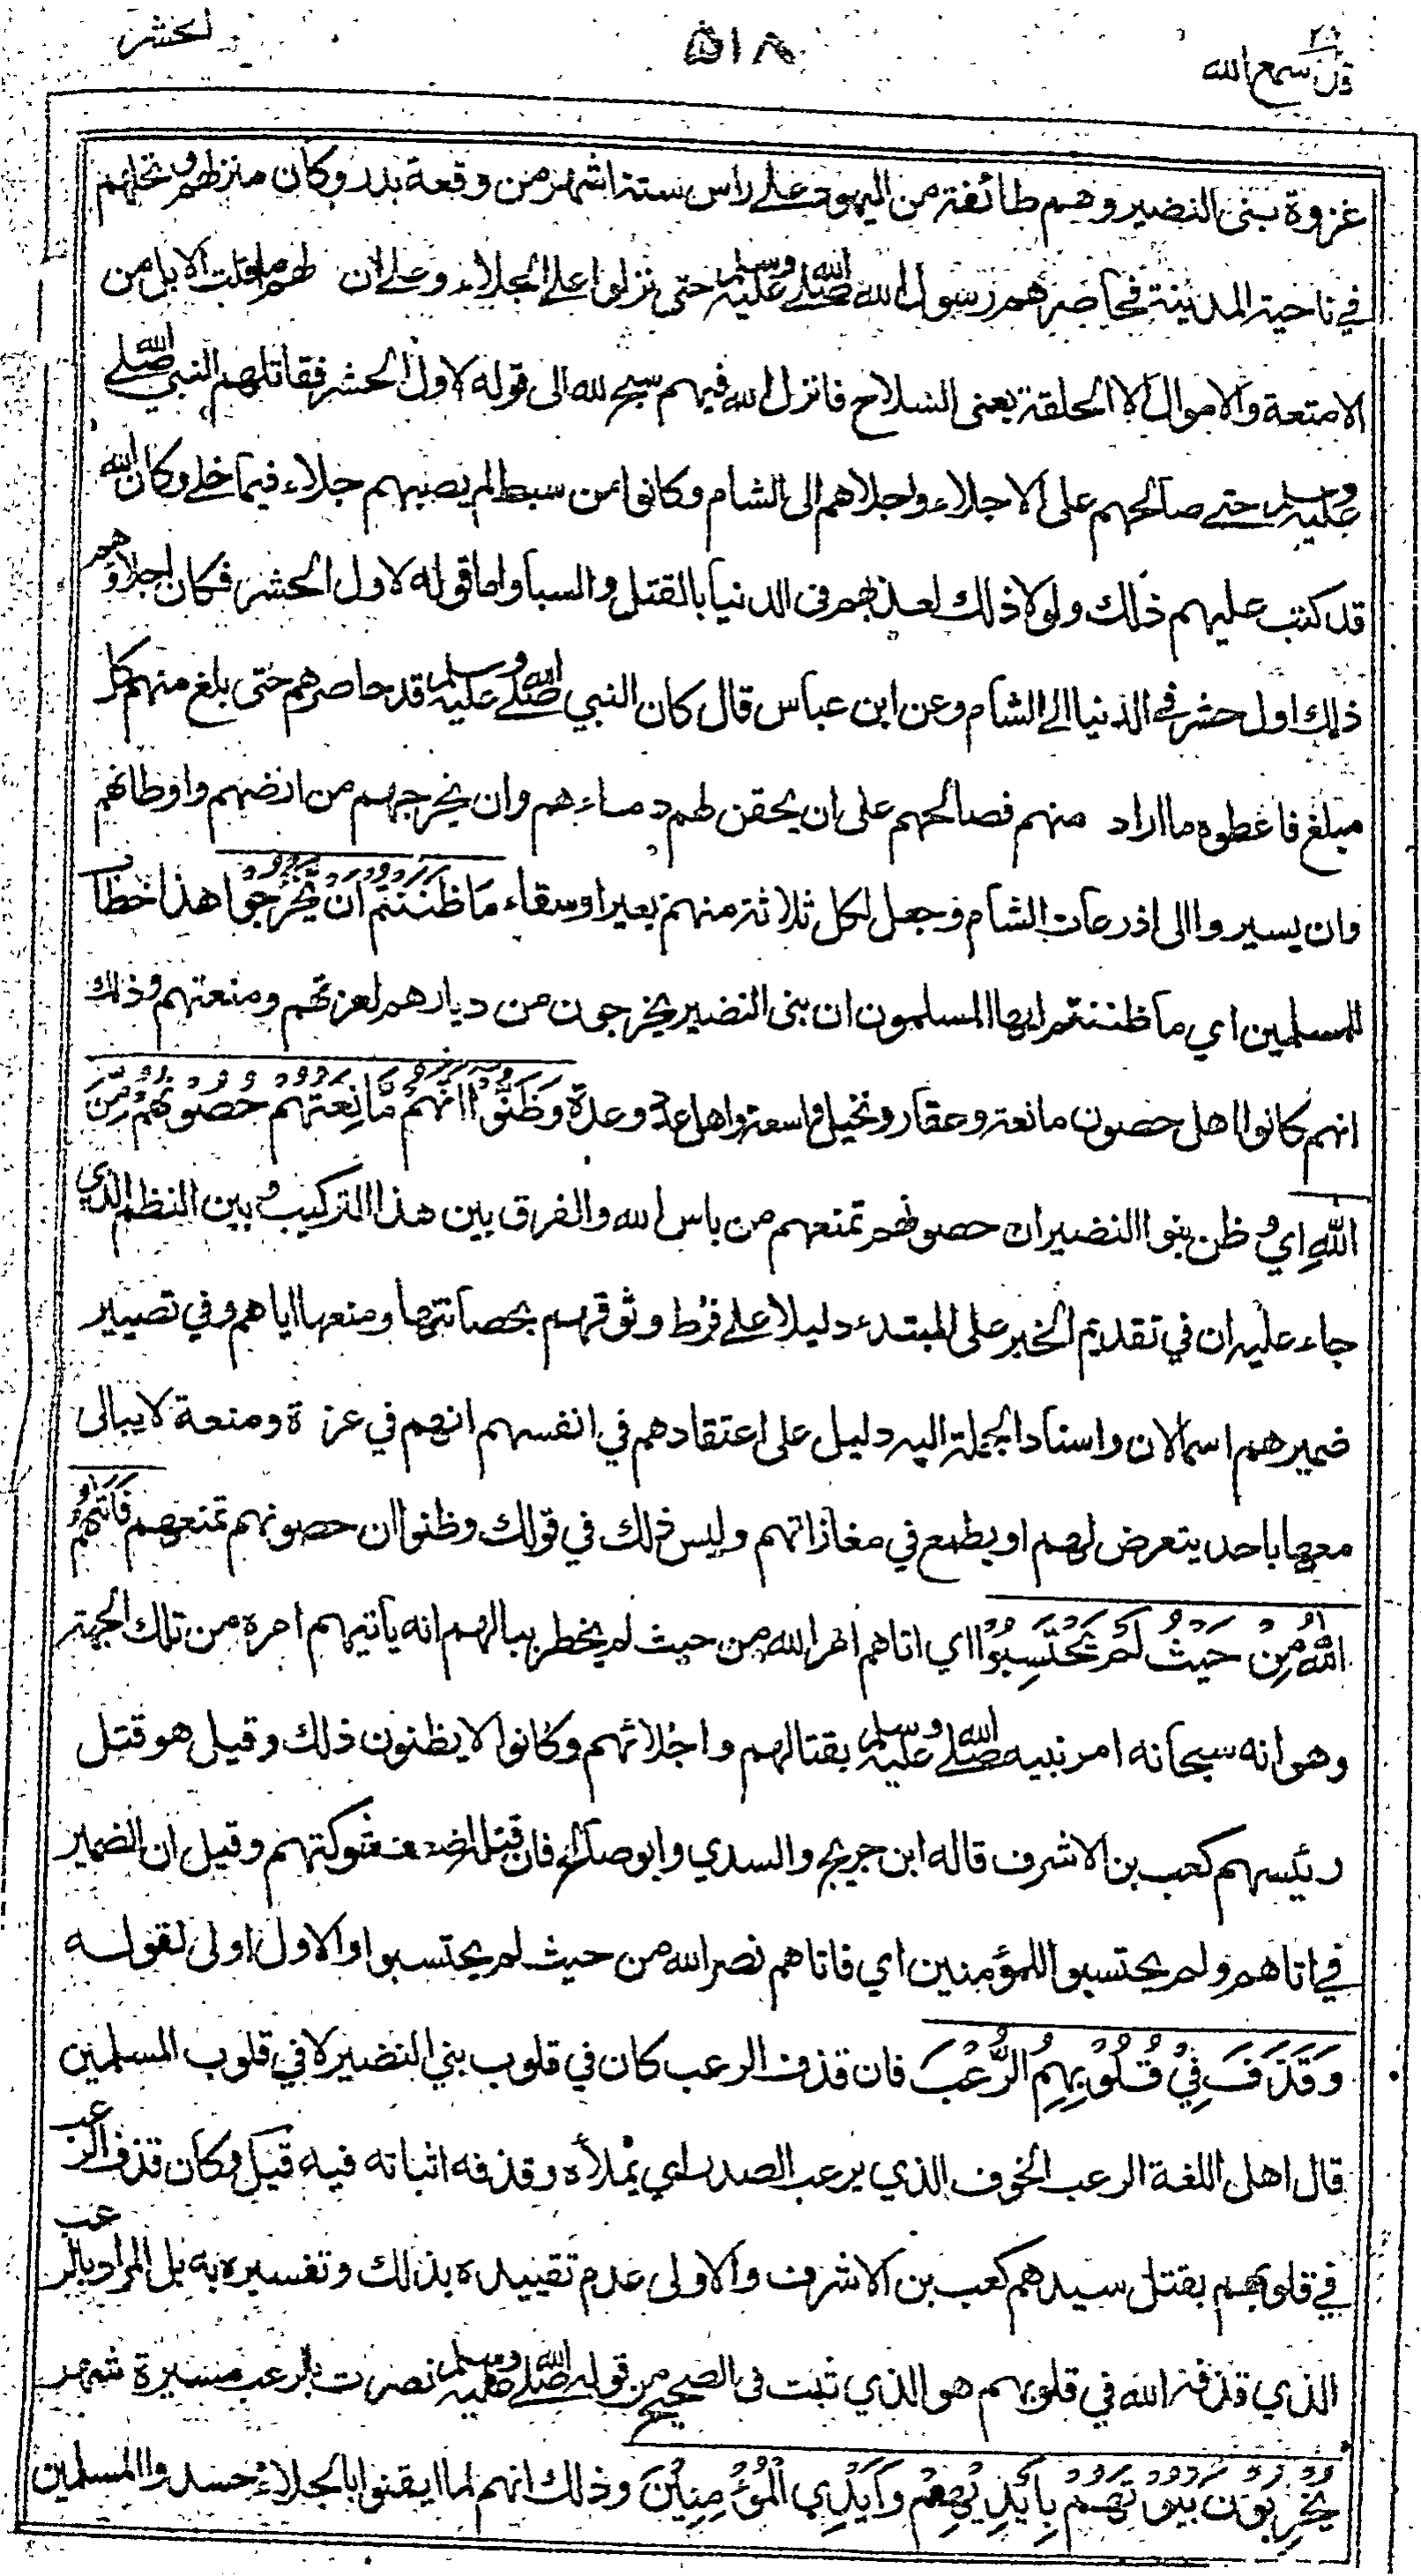 قد سمع الله ٢٨
٥١٨
الحشر
غزوة بنى النضير وهم طائفة من اليهود على راس ستة اشهر من وقعة بدر وكان منزلهم ونخلهم
في ناحية المدينة فحاصرهم رسول الله صلى الله عليه وسلم حتى نزلوا على الجلاء وعلى ان لهم ما اقلت الابل من
الامتعة والاموال الا الحلقة يعنى السلاح فانزل الله فيهم سبح لله الى قوله لاول الحشر فقاتلهم النبي صلى الله
عليه وسلم حتى صالحهم على الاجلاء واجلاهم الى الشام وكانوا من سبط لم يصبهم جلاء فيما خلى وكان الله
قد كتب عليهم ذلك ولولا ذلك لعذبهم فى الدنيا بالقتل والسبا واما قوله لاول الحشر فكان اجلاؤهم
ذلك اول حشر في الدنيا الى الشام وعن ابن عباس قال كان النبي صلى الله عليه وسلم قد حاصرهم حتى بلغ منهم كل
مبلغ فاعطوه ما اراد منهم فصالحهم على ان يحقن لهم دماءهم وان يخرجهم من ارضهم واوطانهم
وان يسيروا الى اذرعات الشام وجعل لكل ثلاثة منهم بعيرا وسقاء مَا ظَنَنْتُمْ اَنْ يَّخْرُجُوْا هذا خطاب
للمسلمين اي ما ظننتم ايها المسلمون ان بنى النضير يخرجون من ديارهم لعزتهم ومنعتهم وذلك
انهم كانوا اهل حصون مانعة وعقار ونخيل واسعة واهل عدد وعدة وَظَنُّوْا اَنَّهُمْ مَّانِعَتُهُمْ حُصُوْنُهُمْ مِّنَ
اللّٰهِ اي وظن بنوا النضير ان حصونهم تمنعهم من باس الله والفرق بين هذا التركيب وبين النظم الذي
جاء عليه ان في تقديم الخبر على المبتدء دليلا على فرط وثوقهم بحصانتها ومنعها اياهم وفي تصيير
ضميرهم اسما لان واسناد الجملة اليه دليل على اعتقادهم في انفسهم انهم في عزة ومنعة لا يبالى
معها باحد يتعرض لهم او يطمع في مغازاتهم وليس ذلك في قولك وظنوا ان حصونهم تمنعهم فَاَتٰىهُمُ
اللّٰهُ مِنْ حَيْثُ لَمْ يَحْتَسِبُوْا اي اتاهم امر الله من حيث لم يخطر ببالهم انه ياتيهم امره من تلك الجهة
وهو انه سبحانه امر نبيه صلى الله عليه وسلم بقتالهم واجلائهم وكانوا لا يظنون ذلك وقيل هو قتل
رئيسهم كعب بن الاشرف قاله ابن جريج والسدي وابو صالح فان قتله اضعف شوكتهم وقيل ان الضمير
في اتاهم ولم يحتسبوا للمؤمنين اي فاتاهم نصر الله من حيث لم يحتسبوا والاول اولى لقوله
وَقَذَفَ فِيْ قُلُوْبِهِمُ الرُّعْبَ فان قذف الرعب كان في قلوب بني النضير لا في قلوب المسلمين
قال اهل اللغة الرعب الخوف الذي يرعب الصدر اي يملأه وقذفه اثباته فيه قيل وكان قذف الرعب
في قلوبهم بقتل سيدهم كعب بن الاشرف والاولى عدم تقييده بذلك وتفسيره به بل المراد بالرعب
الذي قذفه الله في قلوبهم هو الذي ثبت فى الصحيح من قوله صلى الله عليه وسلم نصرت بالرعب مسيرة شهر
يُخْرِبُوْنَ بُيُوْتَهُمْ بِاَيْدِيْهِمْ وَاَيْدِي الْمُؤْمِنِيْنَ وذلك انهم لما ايقنوا بالجلاء حسدوا المسلمين